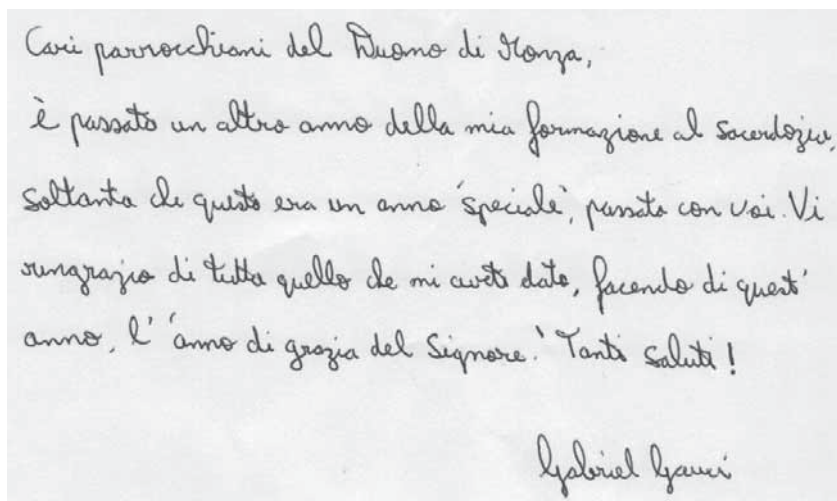 Cari parrocchiani del Duomo di Monza,
è passato un altro anno della mia formazione al sacerdozio,
soltanto che questo era un anno 'speciale', passato con voi. Vi
ringrazio di tutto quello che mi avete dato, facendo di quest'
anno, l' 'anno di grazia del Signore.' Tanti saluti!
Gabriel Gauci